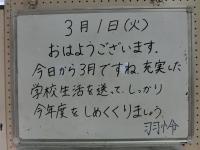 3月1日(火)
おはようございます。
今日から3月ですね。充実した
学校生活を送って、しっかり
今年度をしめくくりましょう。